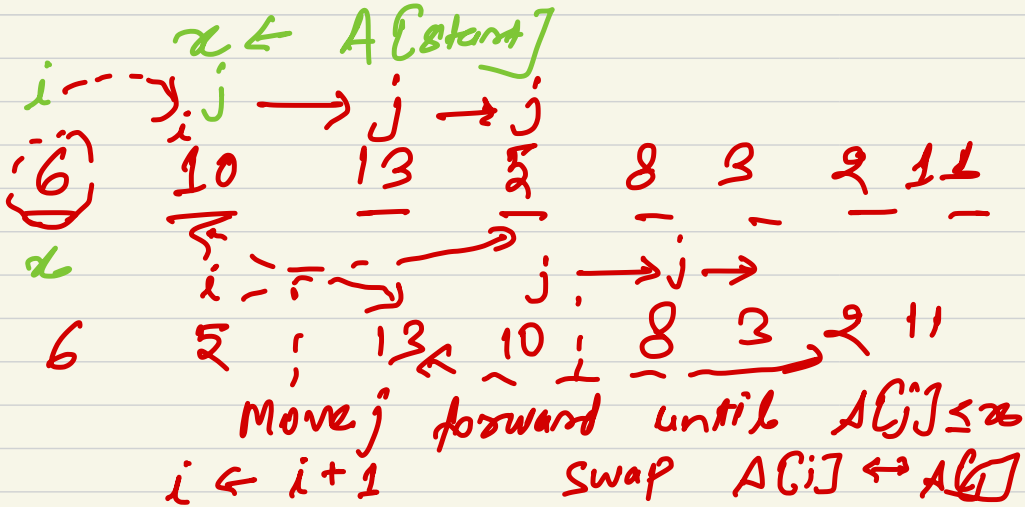 x ← A[start]
i j → j → j
i
6 10 13 5 8 3 2 11
x i j → j →
6 5 13 10 8 3 2 11
Move j forward until A[j] ≤ x
i ← i + 1 swap A[j] ↔ A[i]